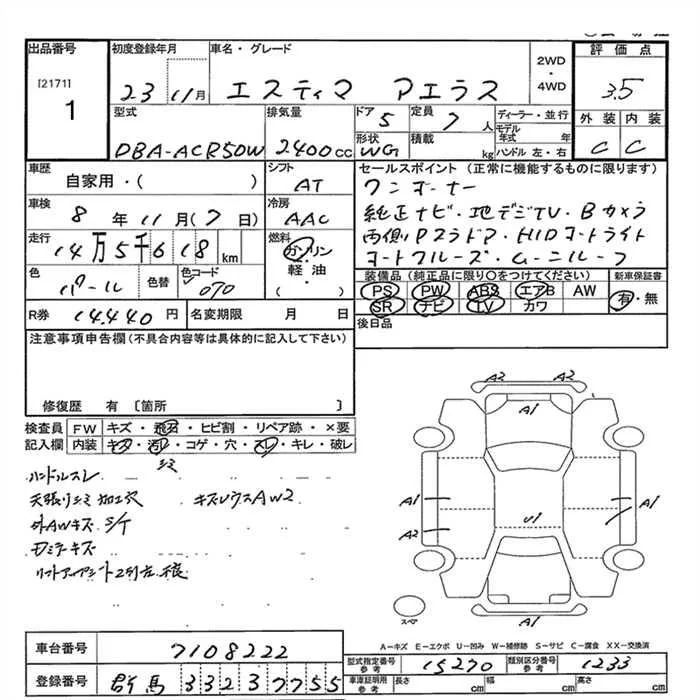 出品番号 初度登録年月 車名・グレード 2WD・4WD 評価点
[2171] 1 23 11月 エスティマ アエラス 3.5
型式 排気量 ドア 5 定員 7人 ディーラー・並行 外装 内装
DBA-ACR50W 2400cc 形状 WG 積載 kg モデル年式 年 ハンドル 左・右 C C
車歴 自家用・( ) シフト AT セールスポイント (正常に機能するものに限ります)
ワンオーナー
車検 8年11月(7日) 冷房 AAC 純正ナビ・地デジTV・Bカメラ
走行 14万5千618km 燃料 ガソリン・軽油・( ) 両側Pスラドア・HIDオートライト
オートクルーズ・ムーンルーフ
色 パール 色替 色コード 070 装備品 (純正品に限り○をつけてください) 新車保証書
PS PW ABS エアB AW 有・無
SR ナビ TV カワ
R券 14,440円 名変期限 月 日 後日品
注意事項申告欄 (不具合内容等は具体的に記入して下さい)
修復歴 有 〔箇所 〕
検査員記入欄 FW キズ・飛石・ヒビ割・リペア跡・×要
内装 キズ・汚レ・コゲ・穴・スレ・キレ・破レ
シミ
ハンドルスレ
天張りシミ 加工穴 キズ
AW2
外AWキズ S/T
キズ
リフトアップシート2列左
A2 A2
A1
A1 A1
A2 U1
スペア A1
A-キズ E-エクボ U-凹み W-補修跡 S-サビ C-腐食 XX-交換済
車台番号 7108222
型式指定番号 参考 15270 類別区分番号 参考 1233
登録番号 群馬 332 3 7755
車庫証明用 参考 長さ cm 幅 cm 高さ cm